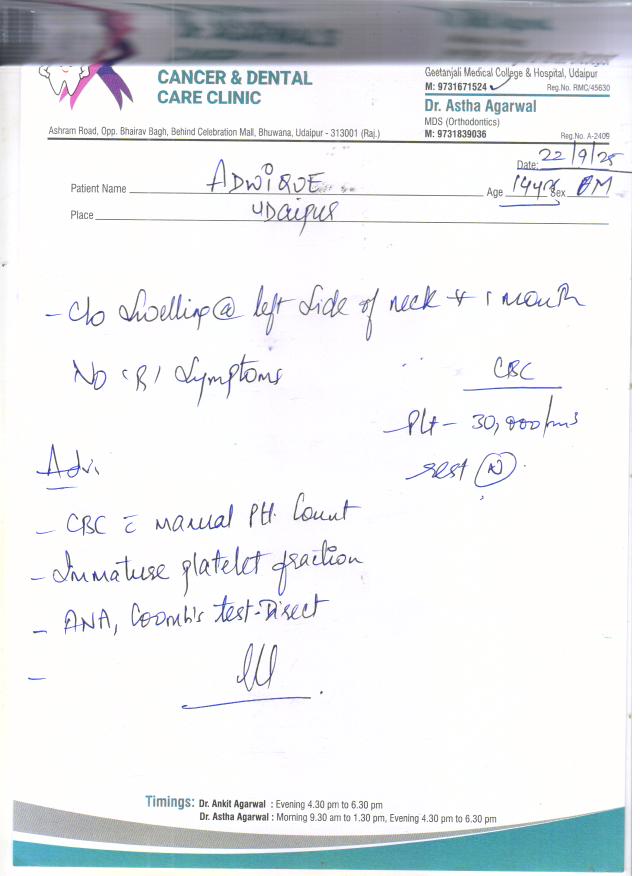 CANCER & DENTAL
CARE CLINIC
Geetanjali Medical College & Hospital, Udaipur
M: 9731671524 Reg.No. RMC/45630
Dr. Astha Agarwal
MDS (Orthodontics)
M: 9731839036 Reg.No. A-2409
Ashram Road, Opp. Bhairav Bagh, Behind Celebration Mall, Bhuwana, Udaipur - 313001 (Raj.)
Date: 22/9/25
Patient Name ADWIQUE Age 14yrs Sex M
Place Udaipur
- C/o Swelling @ left side of neck + 1 month
No 'B' Symptoms
CBC
Plt - 30,000/
rest (N)
Adv.
- CBC c̄ manual Plt. Count
- Immature platelet fraction
- ANA, Coomb's test-Direct
-
Timings: Dr. Ankit Agarwal : Evening 4.30 pm to 6.30 pm
Dr. Astha Agarwal : Morning 9.30 am to 1.30 pm, Evening 4.30 pm to 6.30 pm